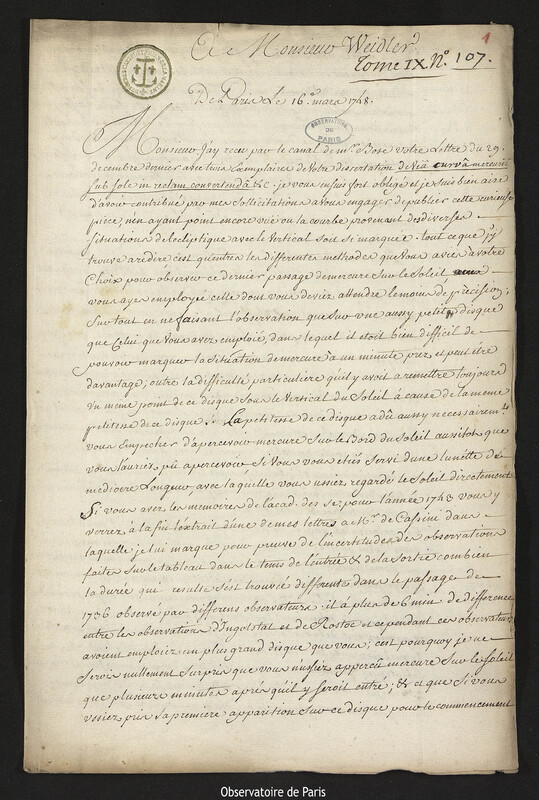 A Monsieur Weidler
1
Tome IX N.º 107.
De Paris le 16.e mars 1748.
OBSERVATOIRE DE PARIS
Monsieur J'ay receu par le canal de m.r Bose votre Lettre du 29.
decembre dernier avec trois Exemplaires de Votre dissertation de Viâ curvâ mercurii
sub sole in rectam convertendâ &c. je vous en suis fort obligé et je suis bien aise
d'avoir contribué par mes sollicitations a vous engager de publier cette curieuse
piece, n'en ayant point encore vüe ou la courbe provenant des diverses
situations de l'ecliptique avec le Vertical soit si marquée. tout ce que j'y
trouve a redire c'est qu'entre les differentes methodes que Vous aviés a votre
Choix pour observer ce dernier passage de mercure sur le Soleil
vous ayés employé celle dont vous deviez attendre le moins de precision;
sur tout en ne faisant l'observation que sur une aussy petite disque
que Celui que Vous avez emploié, dans lequel il etoit bien difficil de
pouvoir marquer la situation de mercure à un minute prez et peut étre
davantage; outre la difficulté particuliere qu'il y avoit a remettre toujours
un meme point de ce disque sous le Vertical du Soleil à cause de la meme
petitesse de ce disque. La petitesse de ce disque a dû aussy necessairem.t
vous empecher d'apercevoir mercure sur le Bord du Soleil aussitot que
vous l'auriés pû apercevoir si Vous vous etiés servi d'une lunette de
mediocre Longueur, avec laquelle vous ussiez regardé le Soleil directement
Si vous avez les memoires de l'acad. des sc. pour l'année 1743 vous y
verrez à la fin l'extrait d'une de mes lettres a M.r de Cassini dans
laquelle je lui marque pour preuve de l'incertitude des observations
faites sur le tableau dans le tems de l'entrée & de la sortie combien
la durée qui resulte s'est trouvée differente dans le passage de
1736 observé par differens observateurs: il a plus de 6 min. de difference
entre les observations d'Ingolstat et de Rostoc et cependant ces observateurs
avoient emploiez un plus grand disque que vous; c'est pourquoy je ne
serois nullement surpris que vous n'ussiez apperçu mercure sur le soleil
que plusieurs minutes après qu'il y seroit entré; & et que si vous
ussiez pris sa premiere apparition sur ce disque pour le commencement
Observatoire de Paris